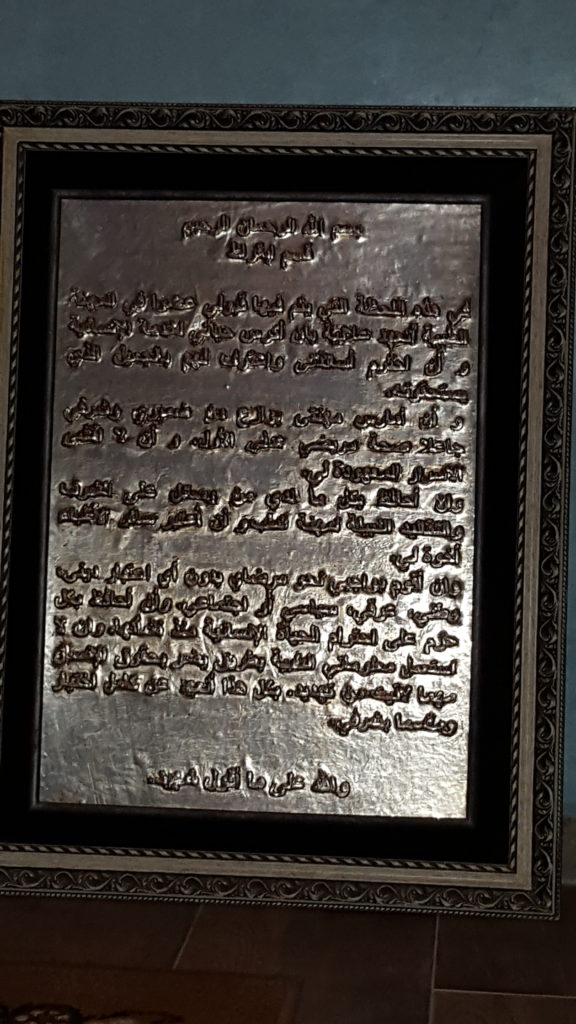 بسم الله الرحمان الرحيم
قسم ابقراط
في هذه اللحظة التي يتم فيها قبولي عضوا في المهنة
الطبية أتعهد علانية بأن أكرس حياتي لخدمة الإنسانية
و أن احترم أساتذتي واعترف لهم بالجميل الذي
يستحقونه.
و أن أمارس مهنتي بوازع من ضميري وشرفي
جاعلا صحة مريضي هدفي الأول. و أن لا أفشي
الأسرار المعهودة لي.
وأن أحافظ بكل ما لدي من وسائل على الشرف
والتقاليد النبيلة لمهنة الطب أن أعتبر سائر الأطباء
أخوة لي.
وأن أقوم بواجبي نحو مرضاي بدون أي اعتبار ديني،
وطني، عرقي، سياسي أو اجتماعي. وأن أحافظ بكل
حزم على احترام الحياة الإنسانية منذ نشأتها. وأن لا
استعمل معلوماتي الطبية بطريق يضر بحقوق الإنسان
مهما لاقيت من تهديد. بكل هذا أتعهد عن كامل اختيار
ومقسما بشرفي.
والله على ما أقول شهيد.